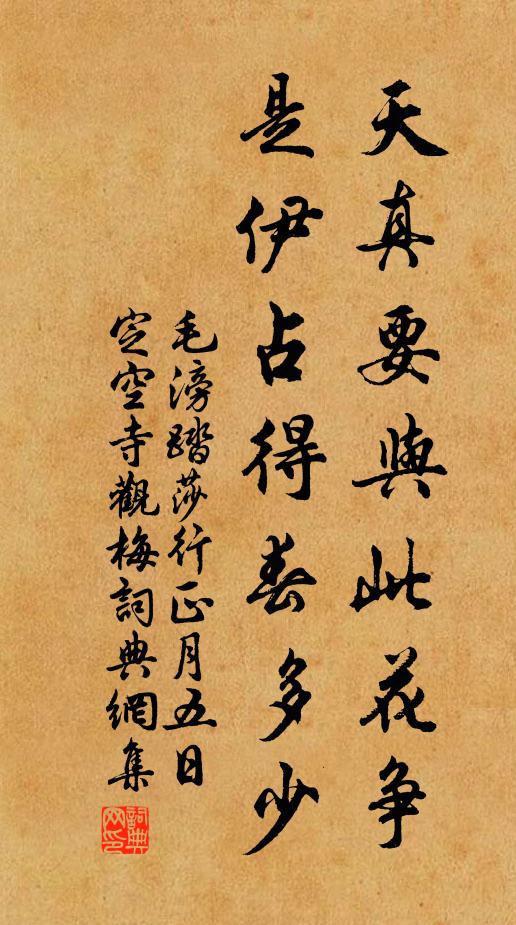 天真要與此花爭
是伊占得春多少
毛滂踏莎行正月五日
定空寺觀梅詞典網集
詞典网印